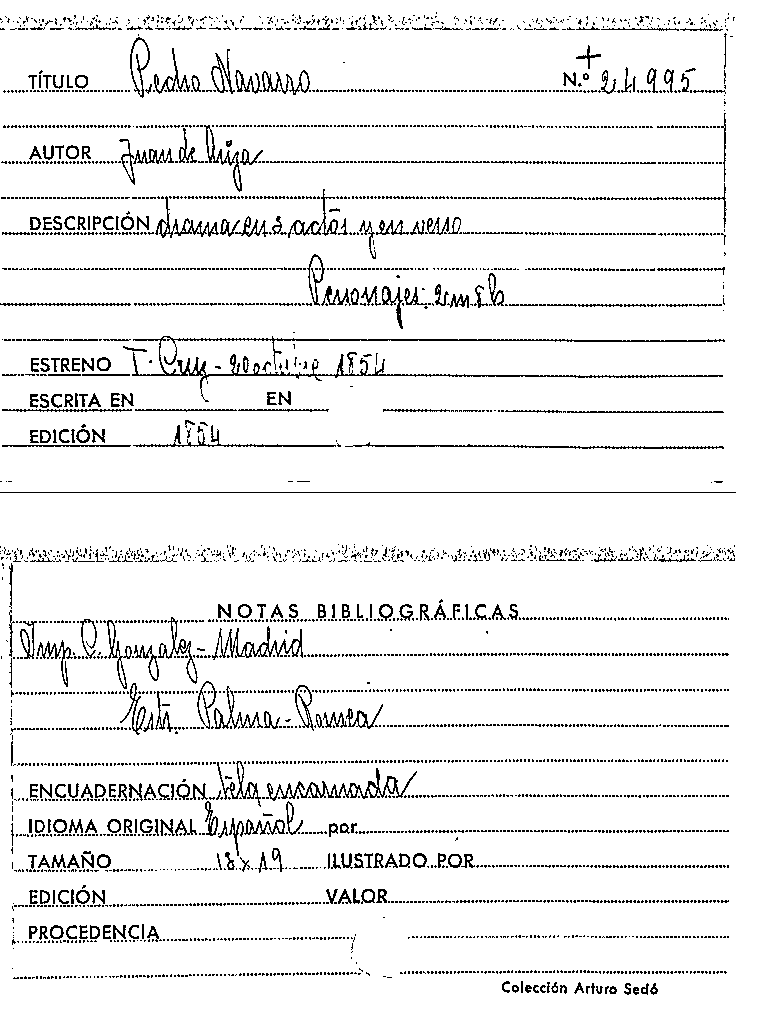 TÍTULO Pedro Navarro N.º 24995
AUTOR Juan de Ariza
DESCRIPCIÓN drama en 3 actos y en verso
Personajes: 2m 8h
ESTRENO T. Cruz - 20 octubre 1854
ESCRITA EN EN
EDICIÓN 1854
NOTAS BIBLIOGRÁFICAS
Imp. C. Gonzalez - Madrid
Estr. Palma - Romea
ENCUADERNACIÓN tela encarnada
IDIOMA ORIGINAL Español por
TAMAÑO 13 x 19 ILUSTRADO POR
EDICIÓN VALOR
PROCEDENCIA
Colección Arturo Sedó